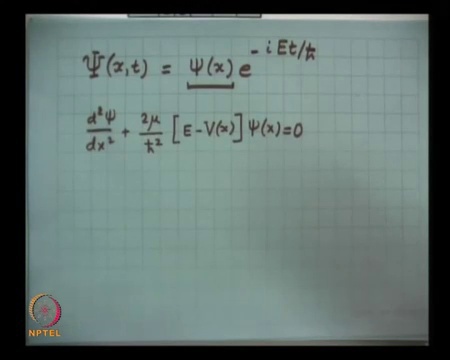 Ψ(x,t) = ψ(x) e^{-iEt/ℏ}
d²ψ/dx² + 2μ/ℏ² [E - V(x)] ψ(x) = 0
NPTEL